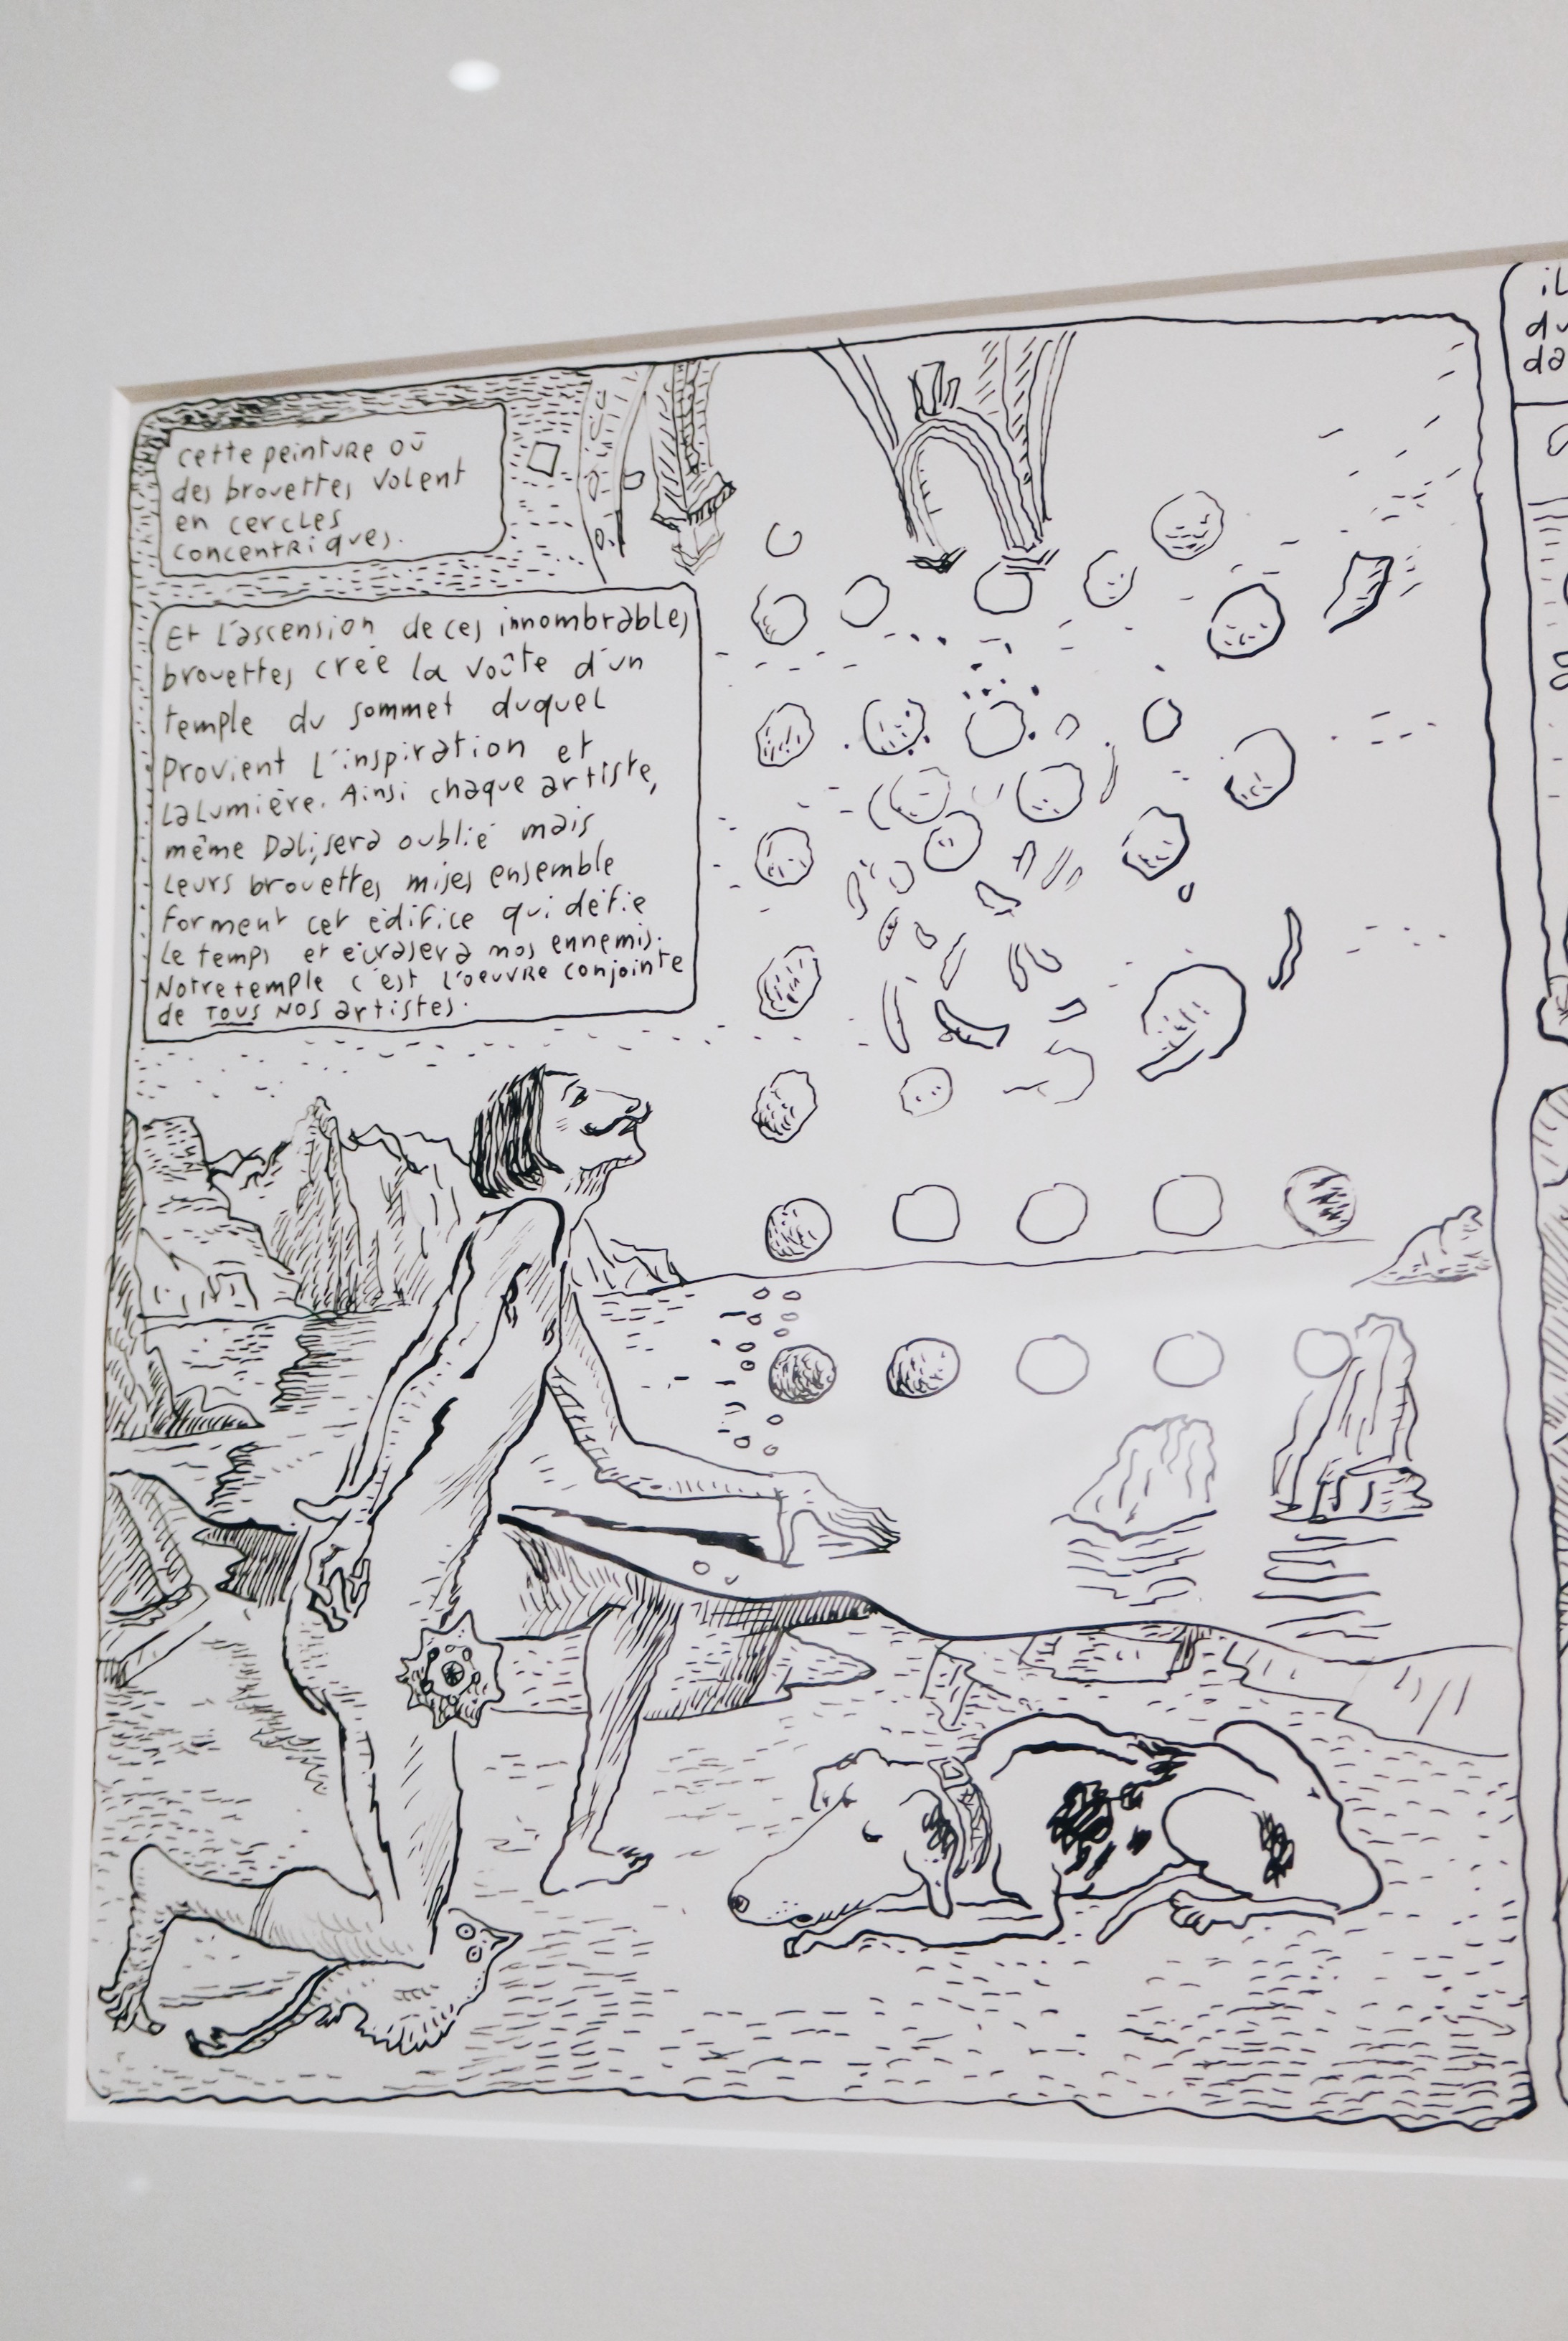 cette peinture où
des brouettes volent
en cercles
concentriques.
Et l'ascension de ces innombrables
brouettes crée la voûte d'un
temple du sommet duquel
provient l'inspiration et
la lumière. Ainsi chaque artiste,
même Dali, sera oublié mais
leurs brouettes mises ensemble
forment cet édifice qui défie
le temps et écrasera nos ennemis.
Notre temple c'est l'oeuvre conjointe
de TOUS NOS artistes.
il